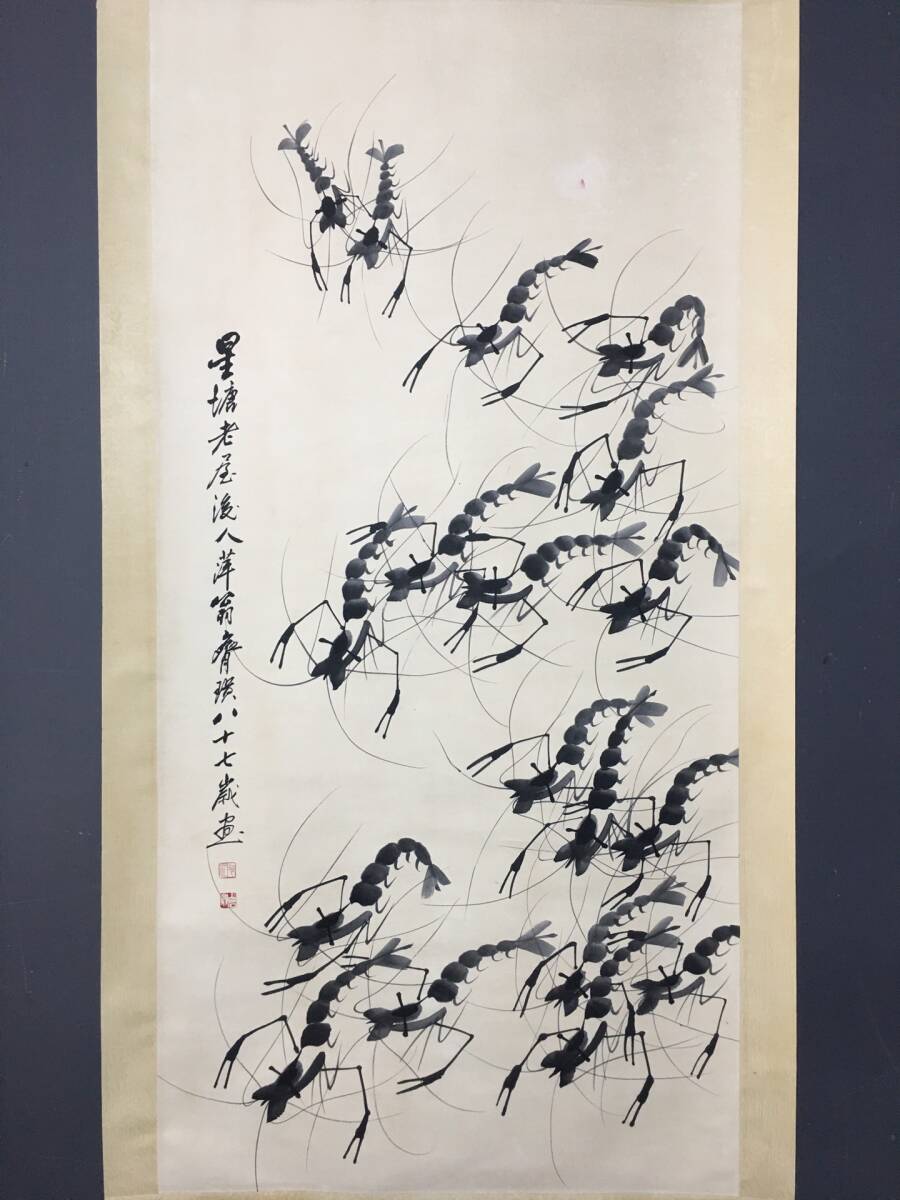 星塘老屋後人萍翁齊璜八十七歲畫